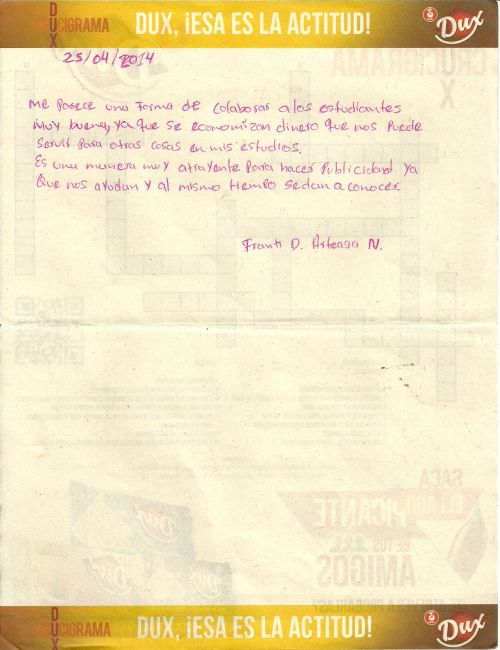 DUX
CRUCIGRAMA
DUX, ¡ESA ES LA ACTITUD!
Dux
25/04/2014
Me Parece una Forma de colaborar a los estudiantes
Muy buena, ya que se economizan dinero que nos puede
Servir Para otras cosas en mis estudios.
Es una manera muy atrayente Para hacer Publicidad ya
Que nos ayudan y al mismo tiempo se dan a conocer.
D. Arteaga N.
SACA
PICANTE
DE TUS
AMIGOS
DUX
CRUCIGRAMA
DUX, ¡ESA ES LA ACTITUD!
Dux